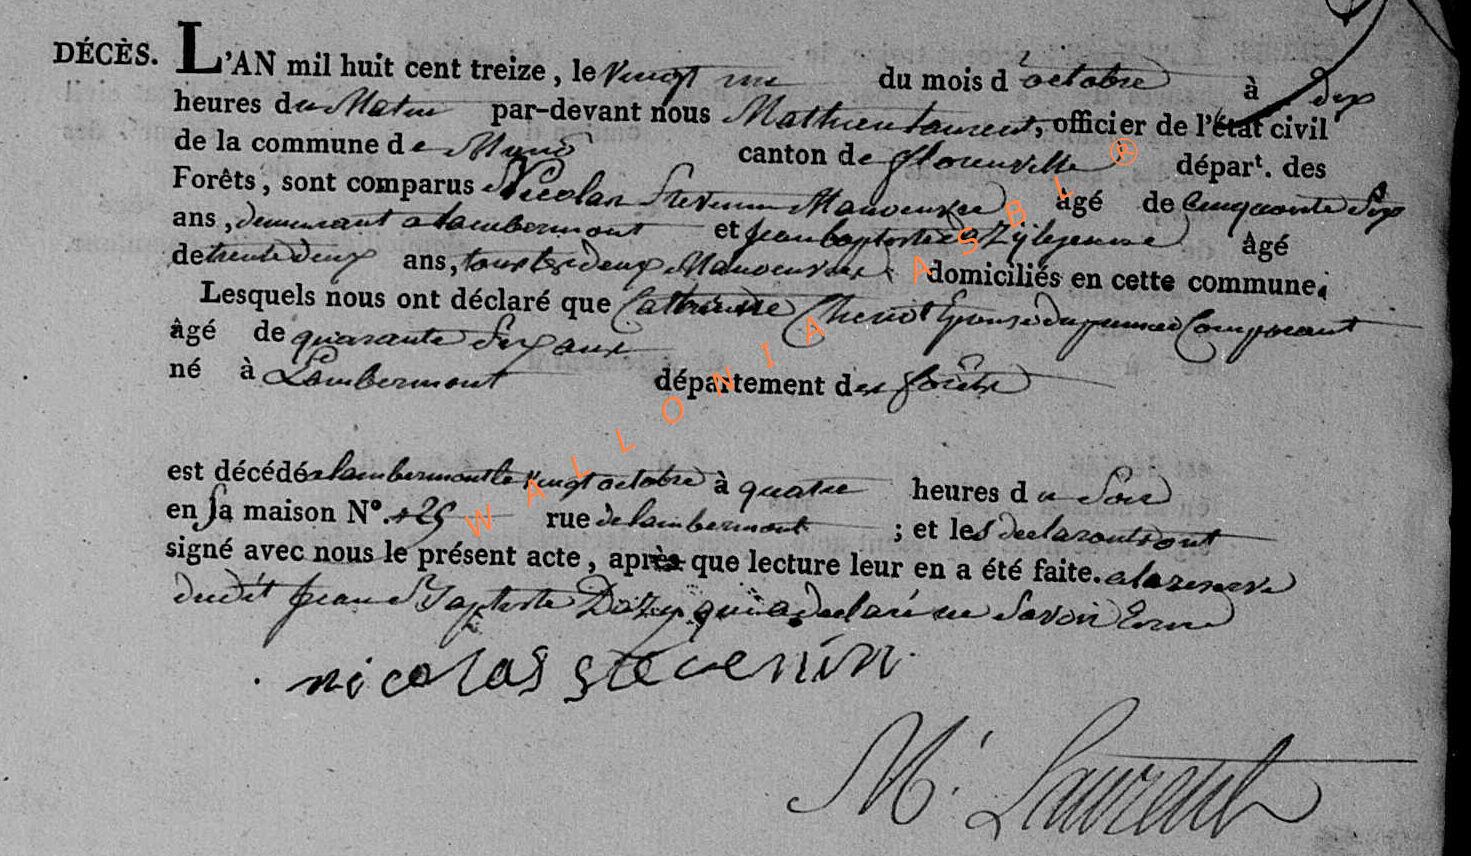 DÉCÈS. L'AN mil huit cent treize, le vingt un du mois d'octobre à dix
heures du Matin par-devant nous Mathieu Laurent, officier de l'état civil
de la commune de Muno canton de florenville départ. des
Forêts, sont comparus Nicolas Stevenin Manoeuvre âgé de Cinquante Six
ans, demeurant a lambermont et jean baptiste Dazy le jeune âgé
de trente deux ans, tous les deux Manoeuvres domiciliés en cette commune.
Lesquels nous ont déclaré que Catherinne Chenot Epouse du premier Comparant
âgé de quarante Six ans
né à Lambermont département des forêts
est décédée a lambermont le vingt octobre à quatre heures du Soir
en sa maison N°. 25 rue de lambermont ; et les declarants ont
signé avec nous le présent acte, après que lecture leur en a été faite. a la reserve
dudit Jean Baptiste Dazy qui a declaré ne Savoir Ecrire
nicolas stevenin
M. Laurent
WALLONIA ASBL ®